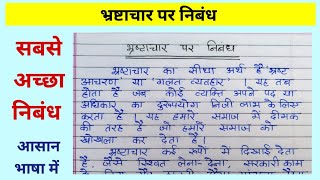 भ्रष्टाचार पर निबंध
सबसे
अच्छा
निबंध
आसान
भाषा में
भ्रष्टाचार पर निबंध
भ्रष्टाचार का सीधा अर्थ है 'भ्रष्ट
आचरण' या 'गलत व्यवहार' । यह तब
होता है जब कोई व्यक्ति अपने पद या
अधिकार का दुरुपयोग निजी लाभ के लिए
करता है । यह हमारे समाज में दीमक
की तरह है जो हमारे समाज को
खोखला कर देता है ।
भ्रष्टाचार कई रूपों में दिखाई देता
है, जैसे रिश्वत लेना-देना, सरकारी काम